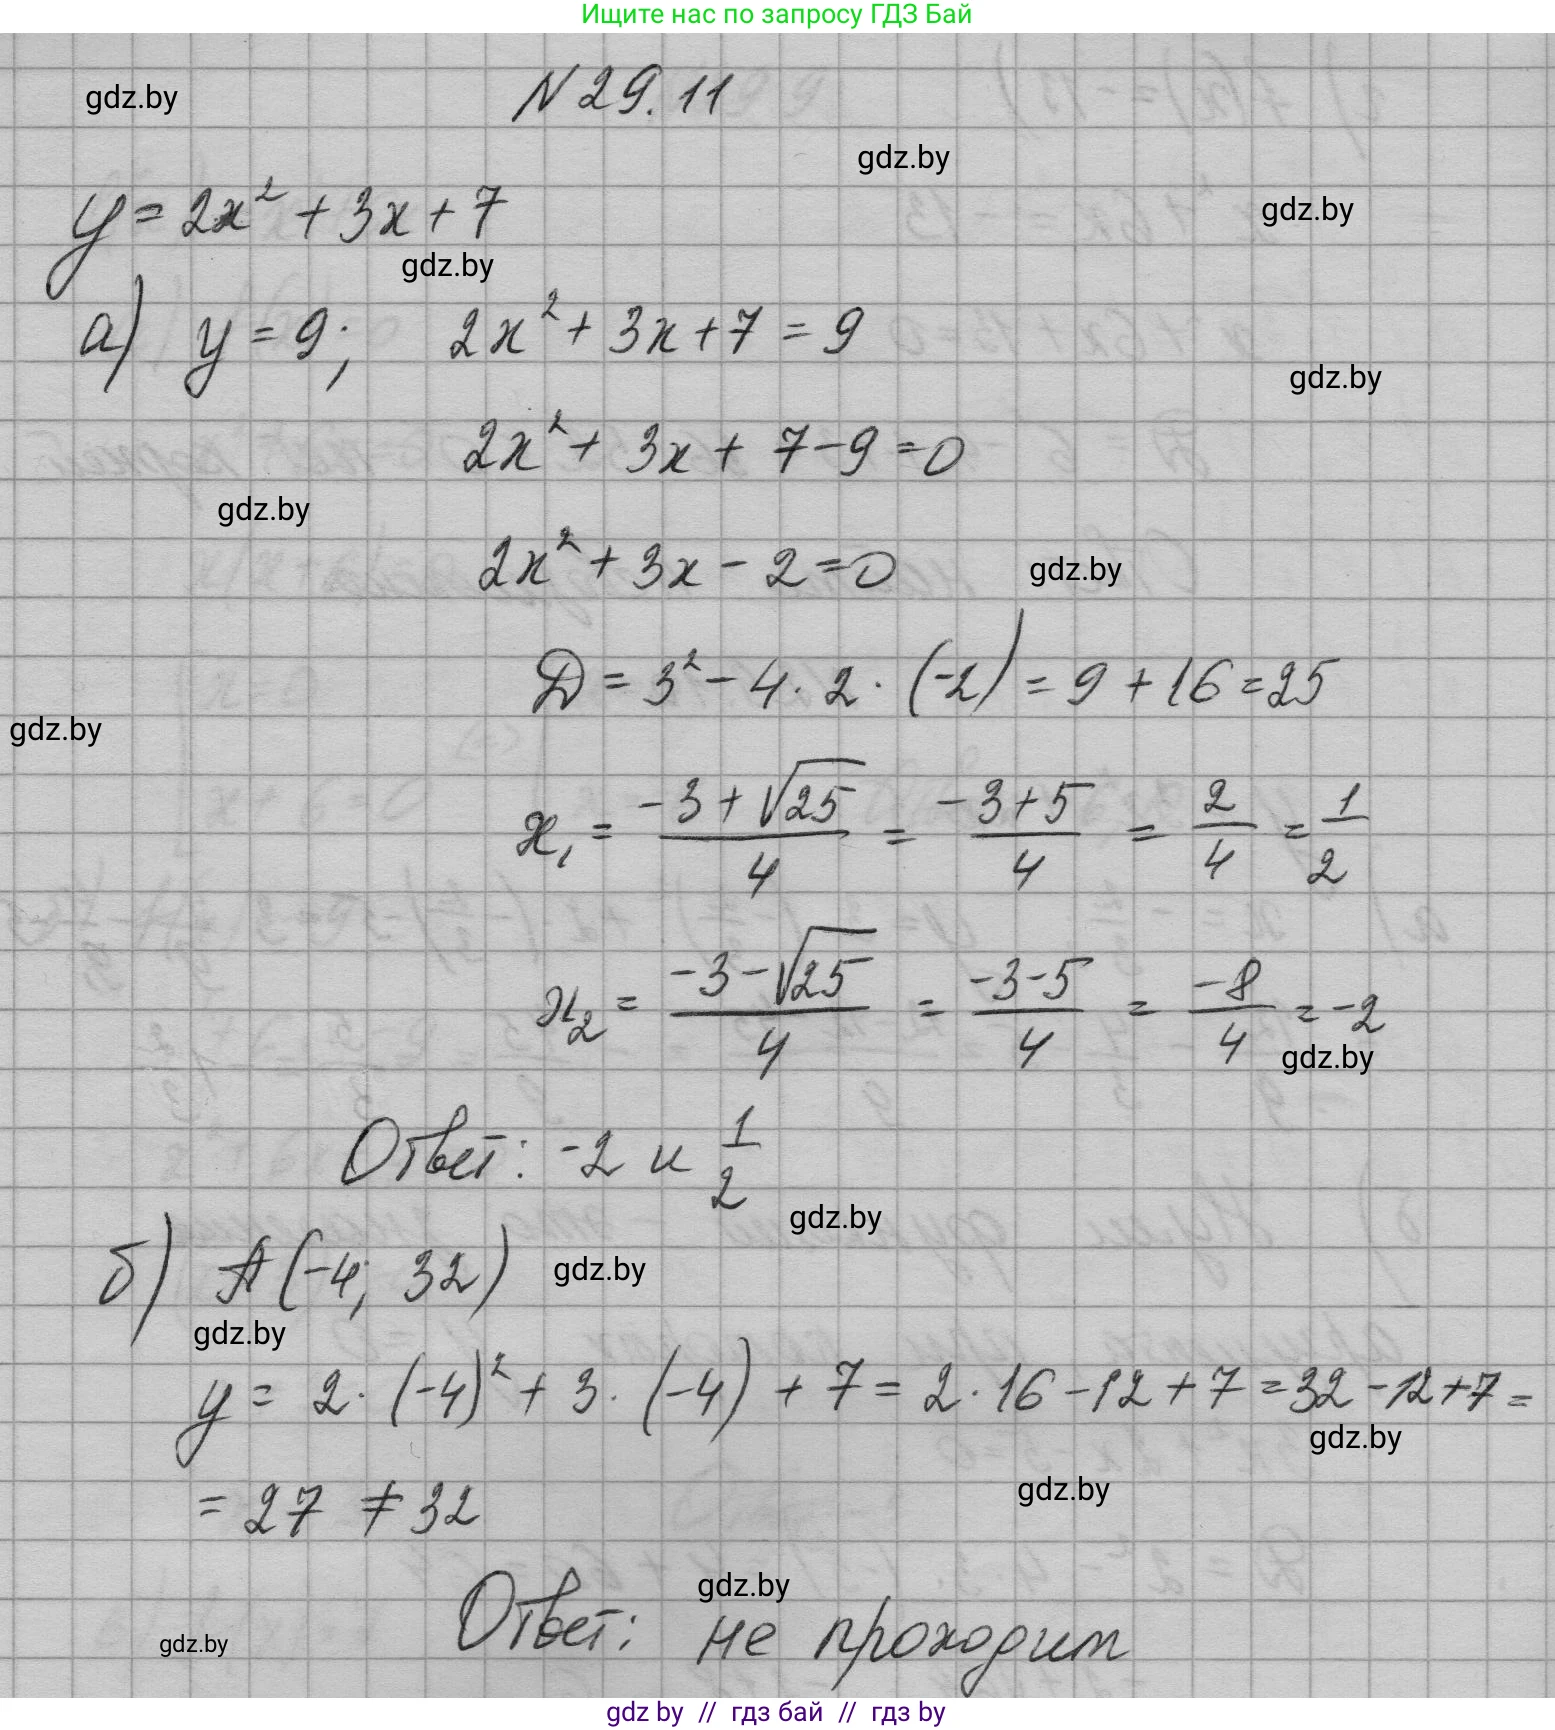 Ищите нас по запросу ГДЗ Бай
N 29.11
gdz.by
gdz.by
gdz.by
y = 2x² + 3x + 7
gdz.by
а) y = 9; 2x² + 3x + 7 = 9
gdz.by
2x² + 3x + 7 - 9 = 0
gdz.by
2x² + 3x - 2 = 0
gdz.by
D = 3² - 4 · 2 · (-2) = 9 + 16 = 25
gdz.by
x₁ = (-3 + √25)/4 = (-3 + 5)/4 = 2/4 = 1/2
x₂ = (-3 - √25)/4 = (-3 - 5)/4 = -8/4 = -2
gdz.by
Ответ: -2 и 1/2
gdz.by
б) A (-4; 32)
gdz.by
gdz.by
y = 2 · (-4)² + 3 · (-4) + 7 = 2 · 16 - 12 + 7 = 32 - 12 + 7 =
gdz.by
gdz.by
= 27 ≠ 32
gdz.by
Ответ: не проходит
gdz.by
gdz by // гдз бай // гдз by